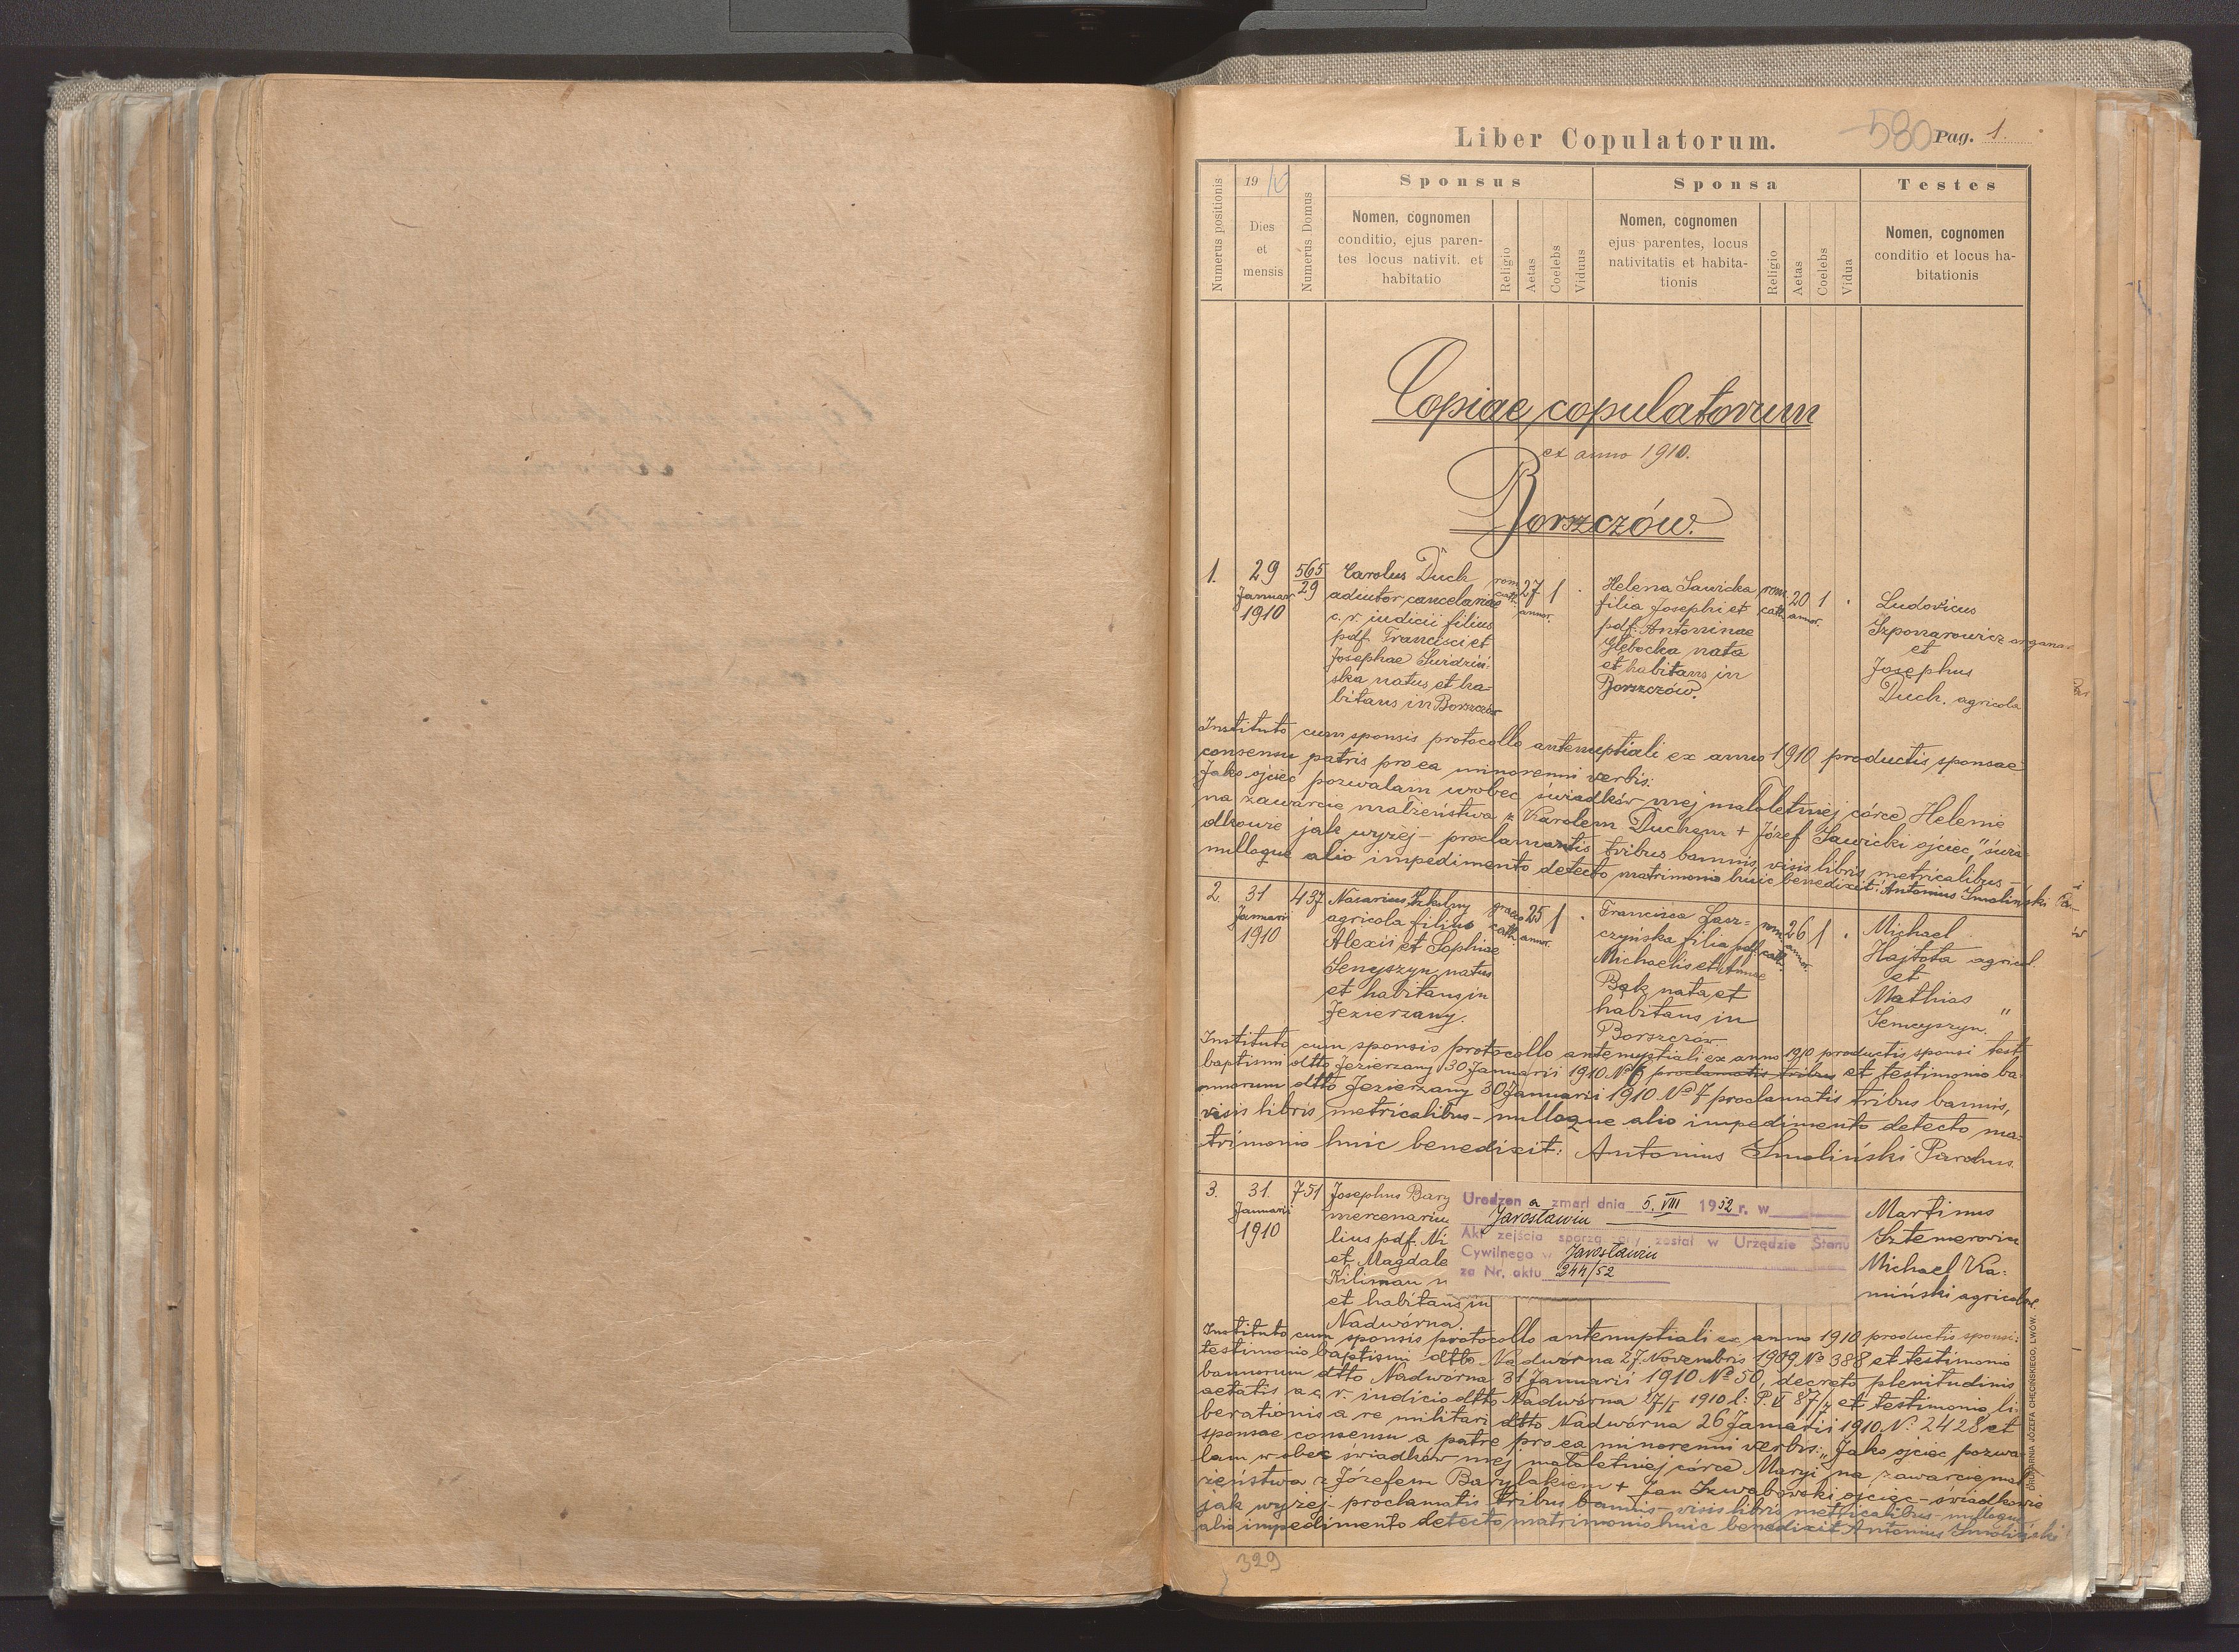 Liber Copulatorum.
580
Pag. 1.
Numerus positionis
19 10
Dies
et
mensis
Numerus Domus
Sponsus
Nomen, cognomen
conditio, ejus paren-
tes locus nativit. et
habitatio
Religio
Aetas
Coelebs
Viduus
Sponsa
Nomen, cognomen
ejus parentes, locus
nativitatis et habita-
tionis
Religio
Aetas
Coelebs
Vidua
Testes
Nomen, cognomen
conditio et locus ha-
bitationis
Copiae copulatorum
ex anno 1910.
Borszczów.
1.
29
Januar
1910
565
29
Carolus Duch
adiutor cancelariae
c. r. iudicii filius
pdf. Francisci et
Josephae Świdziń-
ska natus et ha-
bitans in Borszczów
rom.
cath.
27
annor.
1
Helena Sawicka
filia Josephi et
pdf. Antoninae
Głębocka nata
et habitans in
Borszczów.
rom.
cath.
20
annor.
1
Ludovicus
Szponarowicz organar
et
Josephus
Duch. agricola
Instituto cum sponsis protocollo antenuptiali ex anno 1910 productis sponsae
consensu patris pro ea minorenni verbis:
Jako ojciec pozwalam wobec świadków mej małoletniej córce Helenie
na zawarcie małżeństwa z Karolem Duchem + Józef Sawicki ojciec," świa-
dkowie jak wyżej - proclamatis tribus bannis, visis libris metricalibus -
nulloque alio impedimento detecto matrimonio huic benedixit: Antonius Smoliński
2.
31
Januarii
1910
437
Nazarius Szkolny
agricola filius
Alexii et Sophiae
Semyszyn natus
et habitans in
Jezierzany.
graeco
cath.
25
annor.
1
Francisca Łasz-
czyńska filia pdf.
Michaelis et Annae
Bąk nata et
habitans in
Borszczów
rom.
cath.
26
annor.
1
Michael
Hajtota agricol.
et
Mathias
Semyszyn. "
Instituto cum sponsis protocollo antenuptiali ex anno 1910 productis sponsi test.
baptismi dtto Jezierzany 30 Januarii 1910 No 6 proclamatis tribus et testimonio ba-
nnorum dtto Jezierzany 30 Januarii 1910 No 7 proclamatis tribus bannis,
visis libris metricalibus - nulloque alio impedimento detecto ma-
trimonio huic benedixit: Antonius Smoliński Parochus.
3.
31.
Januarii
1910
751
Josephus Bary
mercenariu
lius pdf. Ni
et Magdale
Kiliman n
et habitans in
Nadwórna.
Urodzon a zmarł dnia 5. VIII 1952 r. w
Jarosławiu
Akt zejścia sporządzony został w Urzędzie Stanu
Cywilnego w Jarosławiu
za Nr. aktu 244/52
Martinus
Michael Ka-
miński agricolae.
Instituto cum sponsis protocollo antenuptiali ex anno 1910 productis sponsi:
testimonio baptismi dtto Nadwórna 27. Novembris 1909 No 388 et testimonio
bannorum dtto Nadwórna 31 Januarii 1910 No 50, decreto plenitudinis
aetatis a c. r. iudicio dtto Nadwórna 17/I 1910 l: P. V 87/7 et testimonio li-
berationis a re militari dtto Nadwórna 26 Januarii 1910 N: 2428 et
sponsae consensu a patre pro ea minorenni verbis: "Jako ojciec pozwa-
lam wobec świadków mej małoletniej córce Maryi na zawarcie mał-
żeństwa z Józefem Barylakiem + Jan Szwabowski ojciec - świadkowie
jak wyżej - proclamatis tribus bannis - visis libris metricalibus - nulloque
alio impedimento detecto matrimonio huic benedixit Antonius Smoliński
329
DRUKARNIA JÓZEFA CHĘCIŃSKIEGO, LWÓW.